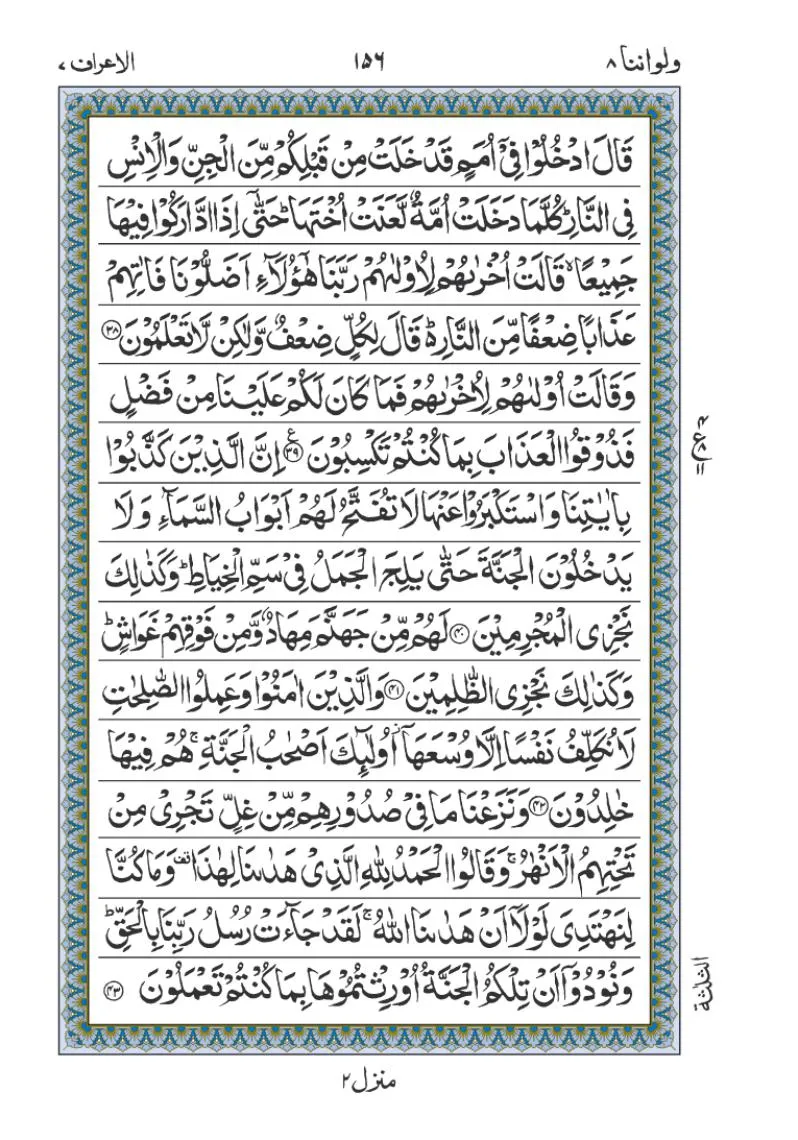 ولواننا ٨
١٥٦
الاعراف ٧
قَالَ ادْخُلُوْا فِیْۤ اُمَمٍ قَدْ خَلَتْ مِنْ قَبْلِكُمْ مِّنَ الْجِنِّ وَالْاِنْسِ
فِی النَّارِ ؕ كُلَّمَا دَخَلَتْ اُمَّةٌ لَّعَنَتْ اُخْتَهَا ؕ حَتّٰۤی اِذَا ادَّارَكُوْا فِیْهَا
جَمِیْعًا ۙ قَالَتْ اُخْرٰىهُمْ لِاُوْلٰىهُمْ رَبَّنَا هٰۤؤُلَآءِ اَضَلُّوْنَا فَاٰتِهِمْ
عَذَابًا ضِعْفًا مِّنَ النَّارِ ؕ۬ قَالَ لِكُلٍّ ضِعْفٌ وَّلٰكِنْ لَّا تَعْلَمُوْنَ ﴿٣٨﴾
وَقَالَتْ اُوْلٰىهُمْ لِاُخْرٰىهُمْ فَمَا كَانَ لَكُمْ عَلَیْنَا مِنْ فَضْلٍ
فَذُوْقُوا الْعَذَابَ بِمَا كُنْتُمْ تَكْسِبُوْنَ ﴿٣٩﴾ ع اِنَّ الَّذِیْنَ كَذَّبُوْا
بِاٰیٰتِنَا وَاسْتَكْبَرُوْا عَنْهَا لَا تُفَتَّحُ لَهُمْ اَبْوَابُ السَّمَآءِ وَلَا
یَدْخُلُوْنَ الْجَنَّةَ حَتّٰی یَلِجَ الْجَمَلُ فِیْ سَمِّ الْخِیَاطِ ؕ وَكَذٰلِكَ
نَجْزِی الْمُجْرِمِیْنَ ﴿٤٠﴾ لَهُمْ مِّنْ جَهَنَّمَ مِهَادٌ وَّمِنْ فَوْقِهِمْ غَوَاشٍ ؕ
وَكَذٰلِكَ نَجْزِی الظّٰلِمِیْنَ ﴿٤١﴾ وَالَّذِیْنَ اٰمَنُوْا وَعَمِلُوا الصّٰلِحٰتِ
لَا نُكَلِّفُ نَفْسًا اِلَّا وُسْعَهَاۤ ؗ اُولٰٓىِٕكَ اَصْحٰبُ الْجَنَّةِ ۚ هُمْ فِیْهَا
خٰلِدُوْنَ ﴿٤٢﴾ وَنَزَعْنَا مَا فِیْ صُدُوْرِهِمْ مِّنْ غِلٍّ تَجْرِیْ مِنْ
تَحْتِهِمُ الْاَنْهٰرُ ۚ وَقَالُوا الْحَمْدُ لِلّٰهِ الَّذِیْ هَدٰىنَا لِهٰذَا قف وَمَا كُنَّا
لِنَهْتَدِیَ لَوْلَاۤ اَنْ هَدٰىنَا اللّٰهُ ۚ لَقَدْ جَآءَتْ رُسُلُ رَبِّنَا بِالْحَقِّ ؕ
وَنُوْدُوْۤا اَنْ تِلْكُمُ الْجَنَّةُ اُوْرِثْتُمُوْهَا بِمَا كُنْتُمْ تَعْمَلُوْنَ ﴿٤٣﴾
الثلثة
منزل ٢